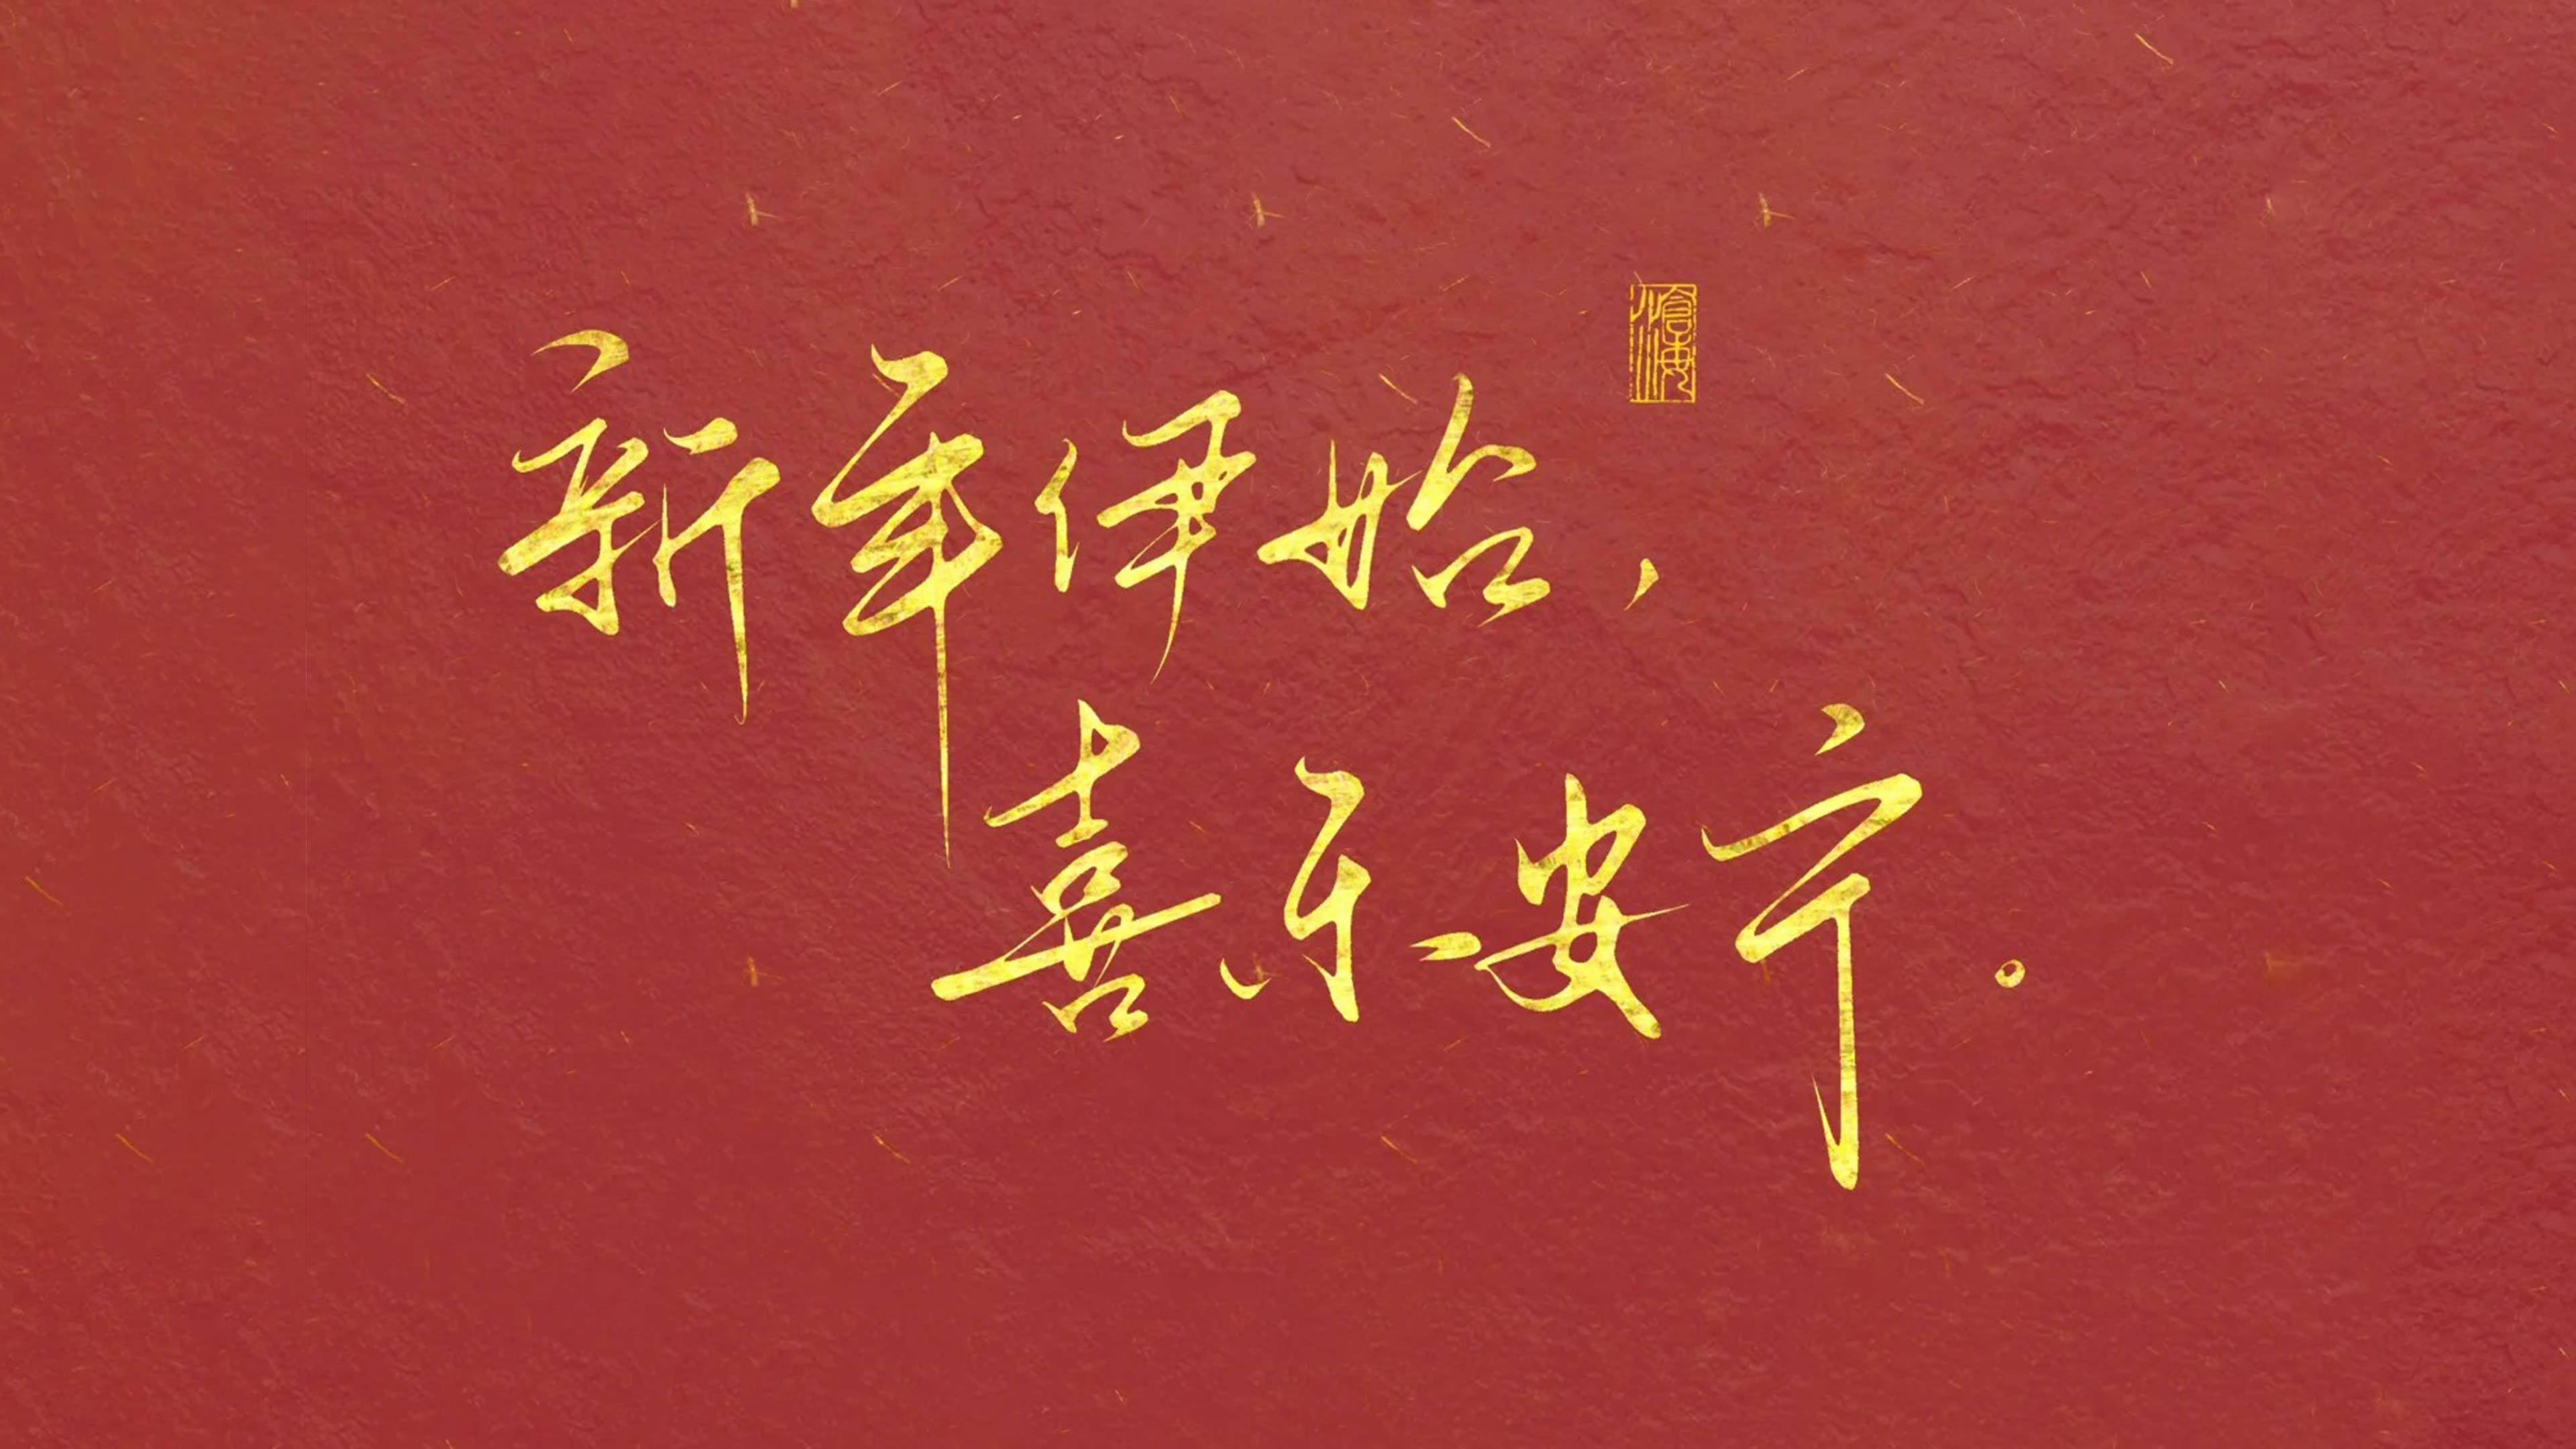 新年伊始，
喜乐安宁。